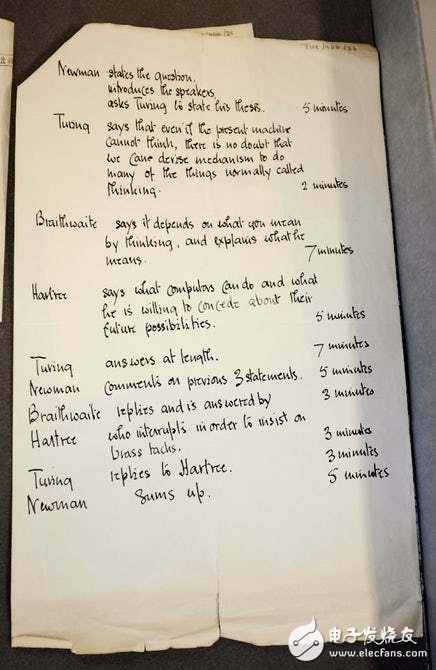 Newman states the question.
introduces the speakers
asks Turing to state his thesis. 5 minutes
Turing says that even if the present machine
cannot think, there is no doubt that
we cane devise mechanism to do
many of the things normally called
thinking. 2 minutes
Braithwaite says it depends on what you mean
by thinking, and explains what he
means. 7 minutes
Hartree says what computors can do and what
he is willing to concede about their
future possibilities. 5 minutes
Turing answers at length. 7 minutes
Newman comments on previous 3 statements. 5 minutes
Braithwaite replies and is answered by 3 minutes
Hartree who interrupts in order to insist on
brass tacks. 3 minutes
Turing replies to Hartree. 3 minutes
Newman sums up. 5 minutes
电子发烧友
www.elecfans.com